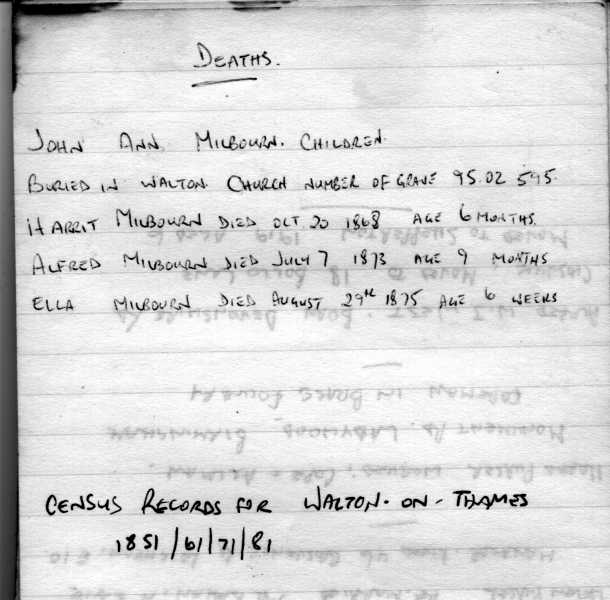 DEATHS.
JOHN ANN MILBOURN. CHILDREN.
BURIED IN WALTON. CHURCH NUMBER OF GRAVE 95.02 595.
HARRIT MILBOURN DIED OCT 20 1868 AGE 6 MONTHS.
ALFRED MILBOURN DIED JULY 7 1873 AGE 9 MONTHS
ELLA MILBOURN DIED AUGUST 29TH 1875 AGE 6 WEEKS
CENSUS RECORDS FOR WALTON-ON-THAMES
1851/61/71/81